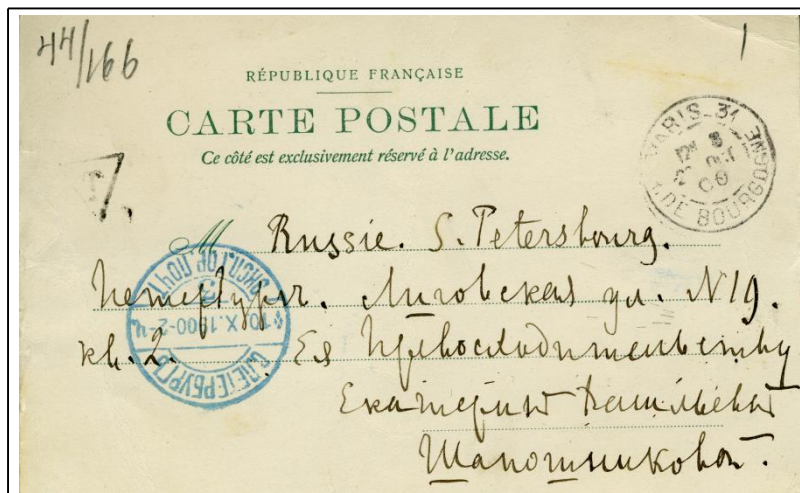 44/166
1
RÉPUBLIQUE FRANÇAISE
CARTE POSTALE
Ce côté est exclusivement réservé à l'adresse.
PARIS_31
R. DE BOURGOGNE
OCT
00
T.
M Russie. S. Petersbourg.
Петербургъ. Лиговская ул. N 19.
кв. 2. Ея Превосходительству
Екатеринѣ Васильевнѣ
Шапошниковой.
10.X.1900
С.ПЕТЕРБУРГЪ